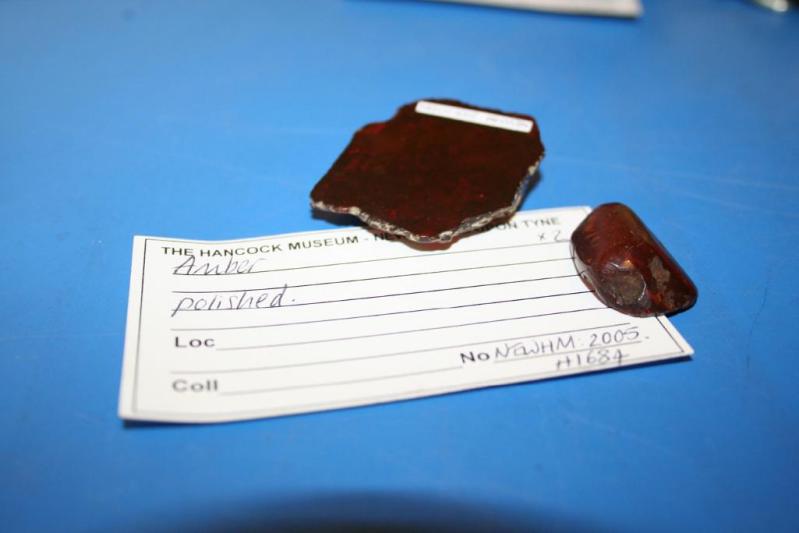 THE HANCOCK MUSEUM - NE ON TYNE
x 2
Amber
polished.
Loc
No NEWHM: 2005.
H1684
Coll